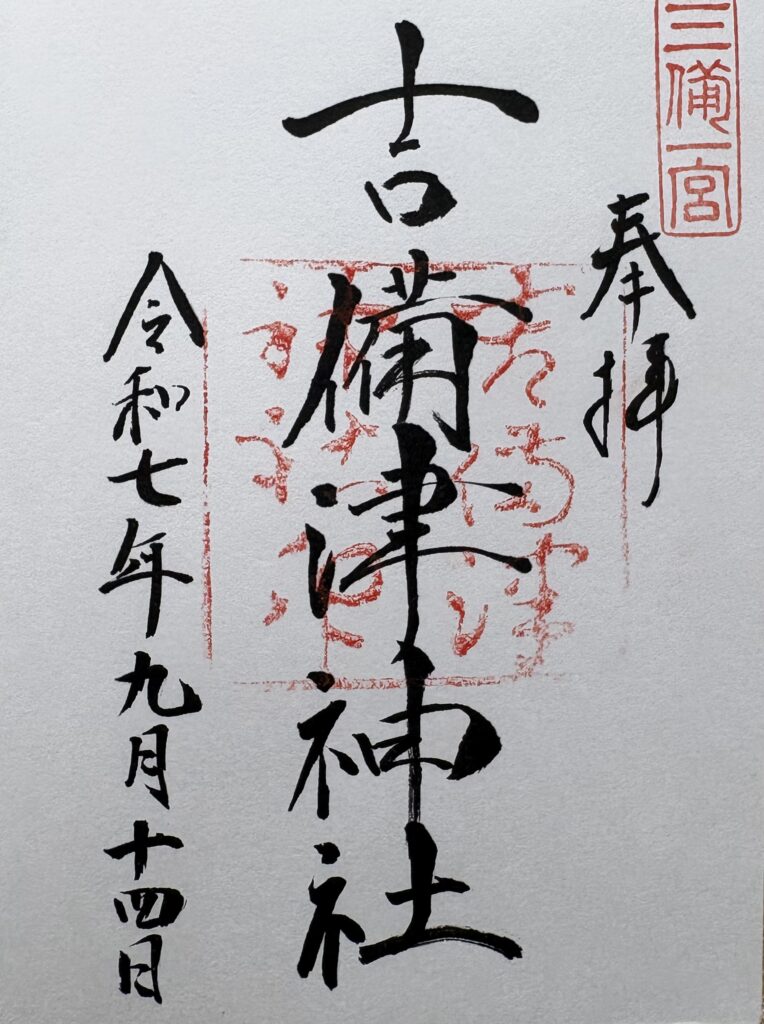 三備一宮
奉拝
吉備津神社
令和七年九月十四日